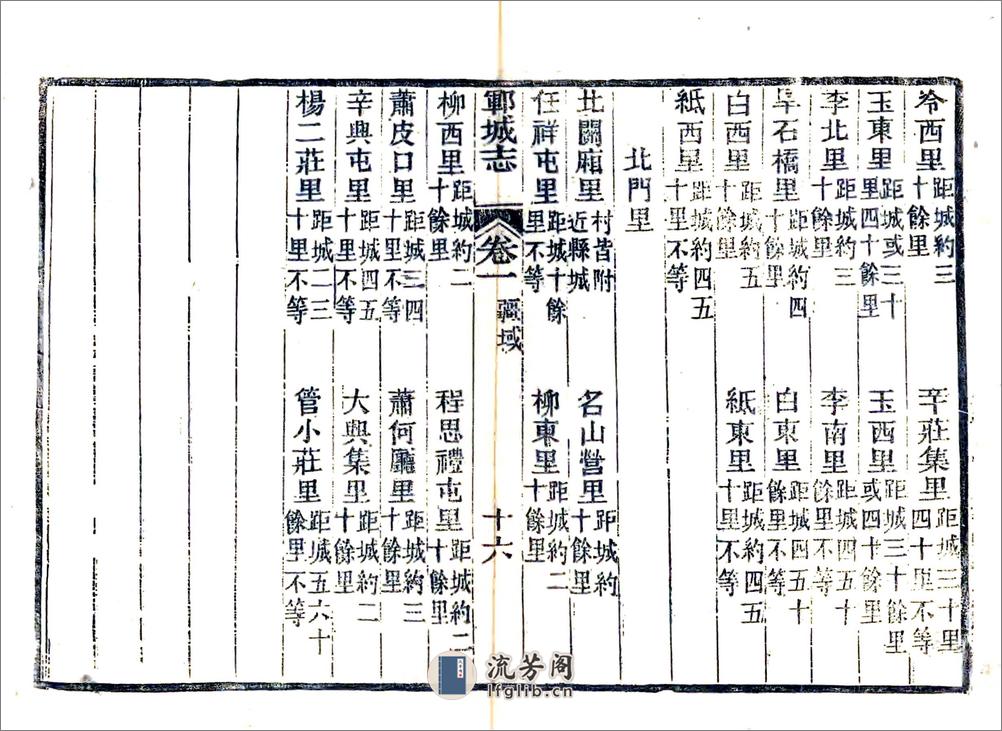 冷西里 距城約三十餘里 辛莊集里 距城三十里四十里不等
玉東里 距城或三十里四十餘里 玉西里 距城三十餘里或四十餘里
李北里 距城約三十餘里 李南里 距城四五十餘里不等
旱石橋里 距城約四十餘里 白東里 距城四五十餘里不等
白西里 距城約五十餘里 紙東里 距城約四五十里不等
紙西里 距城約四五十里不等
北門里
北關廂里 村皆附近縣城 名山營里 距城約三十餘里
任祥屯里 距城十餘里不等 柳東里 距城約二十餘里
鄆城志 卷一 疆域 十六
柳西里 距城約二十餘里 程思禮屯里 距城約二十餘里
蕭皮口里 距城三四十里不等 蕭何廳里 距城約三十餘里
辛興屯里 距城四五十里不等 大興集里 距城約二十餘里
楊二莊里 距城二三十里不等 管小莊里 距城五六十餘里不等
流芳阁
lfglib.cn